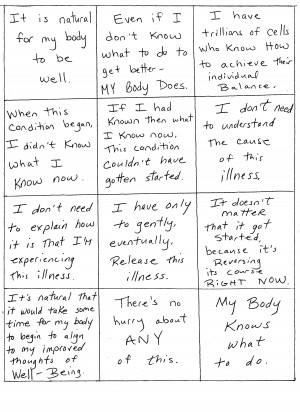 It is natural
for my body
to be
well.
Even if I
don't know
what to do to
get better-
MY Body Does.
I have
trillions of cells
who Know How
to achieve their
individual
Balance.
When this
Condition began,
I didn't Know
what I
Know now.
If I had
Known then what
I Know now,
This condition
Couldn't have
gotten started.
I don't need
to understand
the cause
of this
illness.
I don't need
to explain how
it is that I'm
experiencing
this illness.
I have only
to gently,
eventually,
Release this
illness.
It doesn't
matter
that it got
Started,
because it's
Reversing
its course
RIGHT NOW.
It's natural that
it would take some
time for my body
to begin to align
to my improved
thoughts of
Well-Being.
There's no
hurry about
ANY
of this.
My Body
Knows
what
to do.